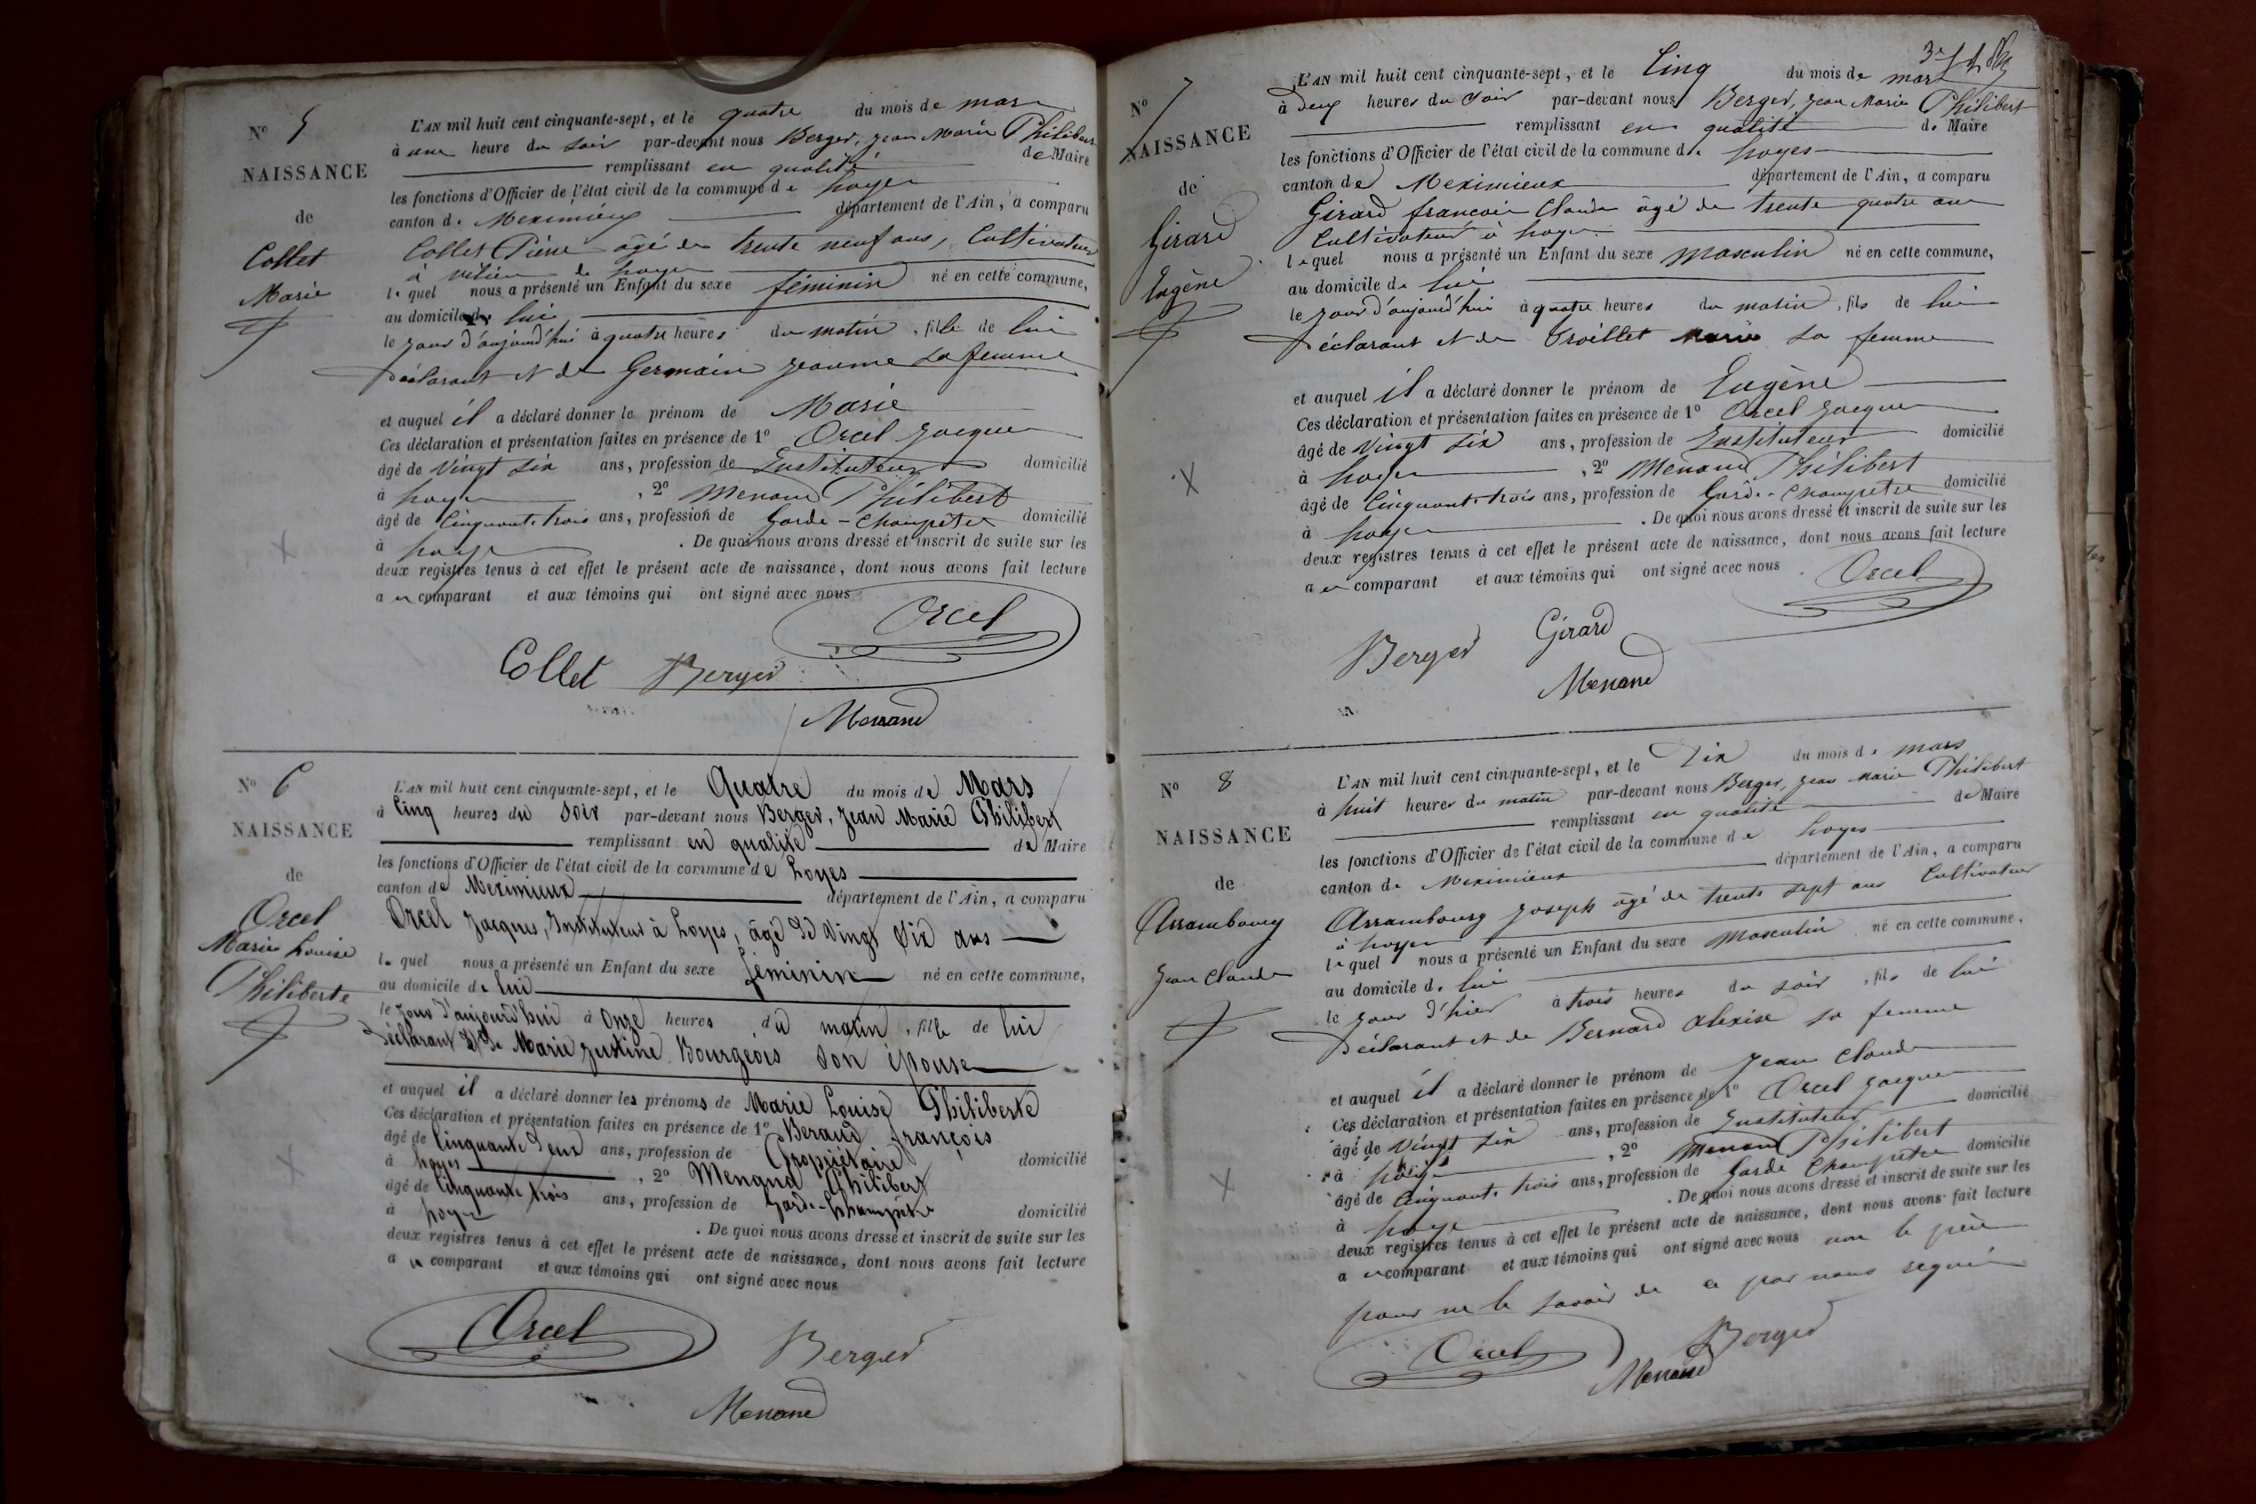 N° 5
NAISSANCE
de
Collet
Marie
L'AN mil huit cent cinquante-sept, et le quatre du mois de mars
à une heure du soir par-devant nous Berger, Jean Marie Philibert
remplissant en qualité de Maire
les fonctions d'Officier de l'état civil de la commune de Loyes
canton de Meximieux département de l'Ain, a comparu
Collet Pierre âgé de trente neuf ans, Cultivateur
à de Loyes
lequel nous a présenté un Enfant du sexe féminin né en cette commune,
au domicile de lui
le jour d'aujourd'hui à quatre heures du matin, fille de lui
déclarant et de Germain Jeanne sa femme
et auquel il a déclaré donner le prénom de Marie
Ces déclaration et présentation faites en présence de 1° Orcel Jacques
âgé de Vingt six ans, profession de Instituteur domicilié
à Loyes, 2° Menand Philibert
âgé de Cinquante trois ans, profession de Garde-Champêtre domicilié
à Loyes. De quoi nous avons dressé et inscrit de suite sur les
deux registres tenus à cet effet le présent acte de naissance, dont nous avons fait lecture
a u comparant et aux témoins qui ont signé avec nous
Orcel
Collet Berger
Menand
N° 6
NAISSANCE
de
Orcel
Marie Louise
Philiberte
L'AN mil huit cent cinquante-sept, et le Quatre du mois de Mars
à Cinq heures du soir par-devant nous Berger, Jean Marie Philibert
remplissant en qualité de Maire
les fonctions d'Officier de l'état civil de la commune de Loyes
canton de Meximieux département de l'Ain, a comparu
Orcel Jacques, Instituteur à Loyes, âgé de vingt six ans
lequel nous a présenté un Enfant du sexe féminin né en cette commune,
au domicile de lui
le jour d'aujourd'hui à onze heures du matin, fille de lui
déclarant et de Marie Justine Bourgeois son épouse
et auquel il a déclaré donner les prénoms de Marie Louise Philiberte
Ces déclaration et présentation faites en présence de 1° Beraud François
âgé de Cinquante deux ans, profession de Propriétaire domicilié
à Loyes, 2° Menand Philibert
âgé de Cinquante trois ans, profession de Garde-Champêtre domicilié
à Loyes. De quoi nous avons dressé et inscrit de suite sur les
deux registres tenus à cet effet le présent acte de naissance, dont nous avons fait lecture
a u comparant et aux témoins qui ont signé avec nous
Orcel
Berger
Menand
3e
N° 7
NAISSANCE
de
Girard
Eugène
L'AN mil huit cent cinquante-sept, et le Cinq du mois de mars
à deux heures du soir par-devant nous Berger, Jean Marie Philibert
remplissant en qualité de Maire
les fonctions d'Officier de l'état civil de la commune de Loyes
canton de Meximieux département de l'Ain, a comparu
Girard francois Claude âgé de trente quatre ans
Cultivateur à Loyes
lequel nous a présenté un Enfant du sexe masculin né en cette commune,
au domicile de lui
le jour d'aujourd'hui à quatre heures du matin, fils de lui
déclarant et de Troillet Marie sa femme
et auquel il a déclaré donner le prénom de Eugène
Ces déclaration et présentation faites en présence de 1° Orcel Jacques
âgé de Vingt six ans, profession de Instituteur domicilié
à Loyes, 2° Menand Philibert
âgé de Cinquante trois ans, profession de Garde-Champêtre domicilié
à Loyes. De quoi nous avons dressé et inscrit de suite sur les
deux registres tenus à cet effet le présent acte de naissance, dont nous avons fait lecture
a u comparant et aux témoins qui ont signé avec nous
Orcel
Berger Girard
Menand
N° 8
NAISSANCE
de
Arrambourg
Jean Claude
L'AN mil huit cent cinquante-sept, et le Dix du mois de mars
à huit heures du matin par-devant nous Berger, Jean Marie Philibert
remplissant en qualité de Maire
les fonctions d'Officier de l'état civil de la commune de Loyes
canton de Meximieux département de l'Ain, a comparu
Arrambourg Joseph âgé de trente sept ans Cultivateur
à Loyes
lequel nous a présenté un Enfant du sexe Masculin né en cette commune,
au domicile de lui
le jour d'hier à trois heures du soir, fils de lui
déclarant et de Bernard Alexise sa femme
et auquel il a déclaré donner le prénom de Jean Claude
Ces déclaration et présentation faites en présence de 1° Orcel Jacques
âgé de Vingt six ans, profession de Instituteur domicilié
à Loyes, 2° Menand Philibert
âgé de Cinquante trois ans, profession de Garde Champêtre domicilié
à Loyes. De quoi nous avons dressé et inscrit de suite sur les
deux registres tenus à cet effet le présent acte de naissance, dont nous avons fait lecture
a u comparant et aux témoins qui ont signé avec nous non le père
pour ne le savoir de ce par nous requis
Orcel Berger
Menand